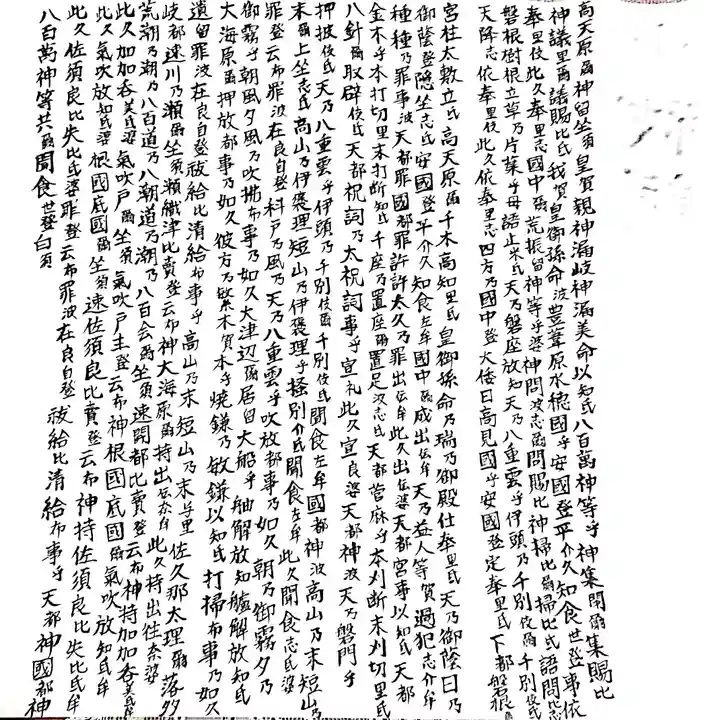 高天原爾神留坐須皇賀親神漏岐神漏美命以知氐八百萬神等乎神集閇爾集賜比
神議里爾議賜比氐我賀皇御孫命波豊葦原水穂國乎安國登平介久知食世登事依
奉里伎此久奉里志國中爾荒振留神等乎婆神問波志爾問賜比神掃比爾掃比氐語問比志
磐根樹根立草乃片葉乎母語止米氐天乃磐座放知天乃八重雲乎伊頭乃千別伎爾千別伎氐
天降志依奉里伎此久依奉里志四方乃國中登大倭日高見國乎安國登定奉里氐下都磐根爾
宮柱太敷立氐高天原爾千木高知里氐皇御孫命乃瑞乃御殿仕奉里氐天乃御蔭日乃
御蔭登隠坐志氐安國登平介久知食左牟國中爾成出伝牟天乃益人等賀過犯志介牟
種種乃罪事波天都罪國都罪許許太久乃罪出伝牟此久出伝婆天都宮事以知氐天都
金木乎本打切里末打断知氐千座乃置座爾置足波志氐天都菅麻乎本刈断末刈切里氐
八針爾取辟伎氐天都祝詞乃太祝詞事乎宣礼此久宣良婆天都神波天乃磐門乎
押披伎氐天乃八重雲乎伊頭乃千別伎爾千別伎氐聞食左牟國都神波高山乃末短山乃
末爾上坐志氐高山乃伊褒理短山乃伊褒理乎掻別介氐聞食左牟此久聞食志氐婆
罪登云布罪波在良自登科戸乃風乃天乃八重雲乎吹放都事乃如久朝乃御霧夕乃
御霧乎朝風夕風乃吹拂布事乃如久大津辺爾居留大船乎舳解放知艫解放知氐
大海原爾押放都事乃如久彼方乃繁木賀本乎焼鎌乃敏鎌以知氐打掃布事乃如久
遺留罪波在良自登祓給比清給布事乎高山乃末短山乃末与里佐久那太理爾落多
岐都速川乃瀬爾坐須瀬織津比賣登云布神大海原爾持出伝奈牟此久持出往奈婆
荒潮乃潮乃八百道乃八潮道乃潮乃八百会爾坐須速開都比賣登云布神持加加呑美氐牟
此久加加呑美氐婆氣吹戸爾坐須氣吹戸主登云布神根國底國爾氣吹放知氐牟
此久氣吹放知氐婆根國底國爾坐須速佐須良比賣登云布神持佐須良比失比氐牟
此久佐須良比失比氐婆罪登云布罪波在良自登祓給比清給布事乎天都神國都神
八百萬神等共爾聞食世登白須